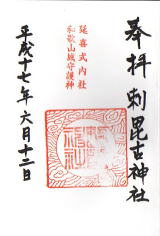 奉拝 刺田比古神社
延喜式内社
和歌山城守護神
平成十七年六月十二日